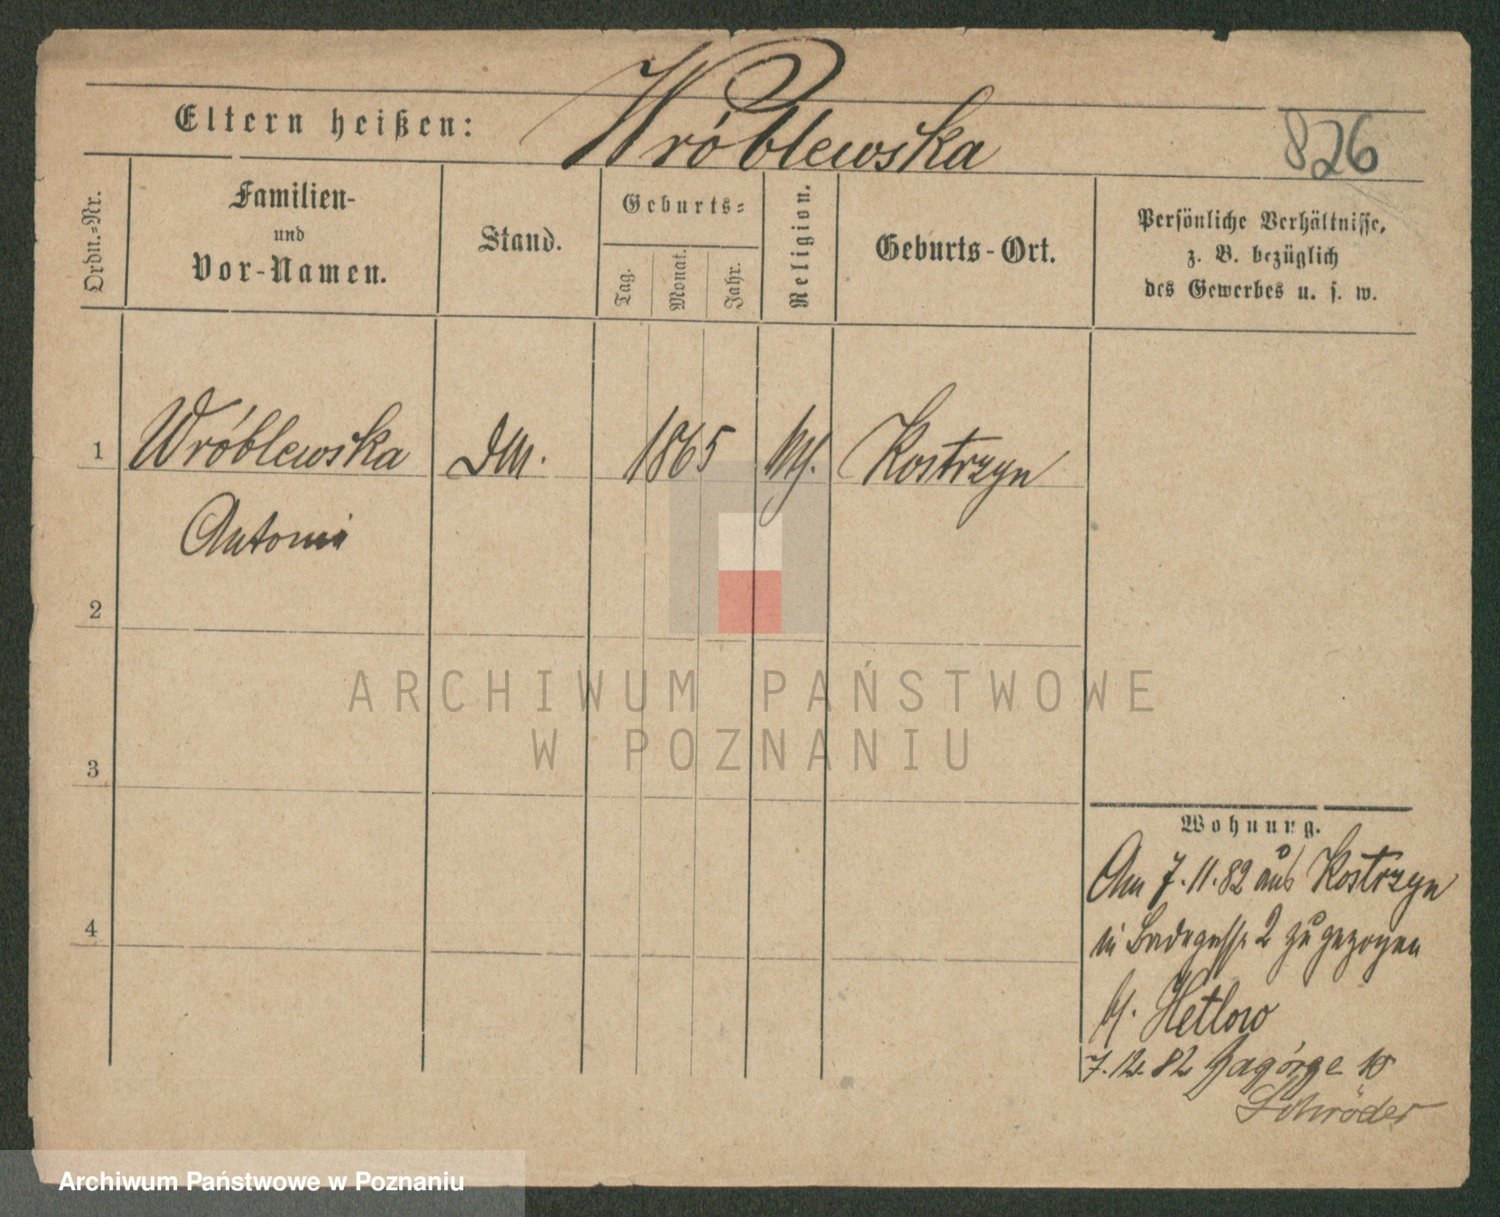 Eltern heißen: Wróblewska
826
Ordn.-Nr.
Familien-
und
Vor-Namen.
Stand.
Geburts-
Tag.
Monat.
Jahr.
Religion.
Geburts-Ort.
Persönliche Verhältnisse,
z. B. bezüglich
des Gewerbes u. s. w.
1 Wróblewska 1865 Kostrzyn
2
3
4
ARCHIWUM PAŃSTWOWE
W POZNANIU
Wohnung.
Am 7.11.82 aus Kostrzyn
in 2 zugezogen
Hetlow
7.12.82 Zagórze 10
Schröder
Archiwum Państwowe w Poznaniu